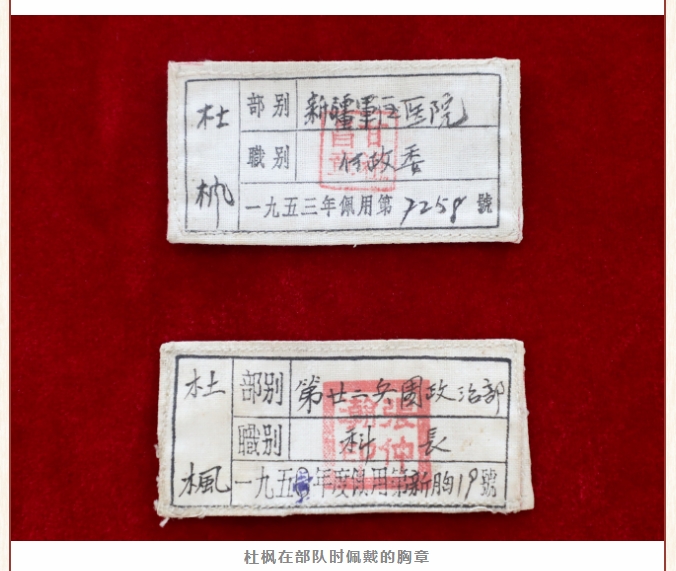 杜枫
部别 新疆軍区医院
職别 付政委
一九五三年佩用第7258號
杜楓
部别 第廿二兵團政治部
職别 科長
一九五年度佩用第新胸19號
杜枫在部队时佩戴的胸章